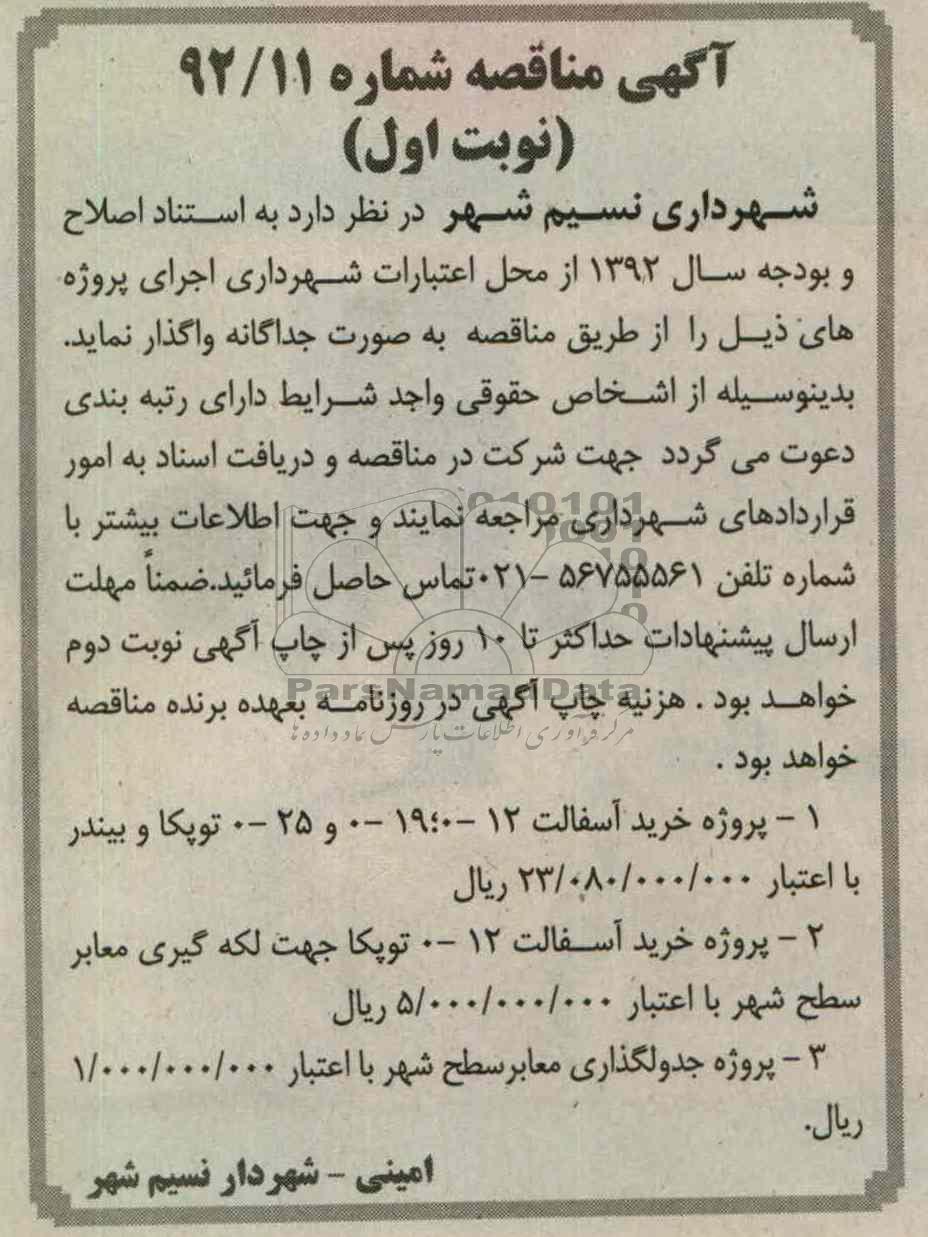 آگهی مناقصه شماره ۹۲/۱۱
(نوبت اول)
شهرداری نسیم شهر در نظر دارد به استناد اصلاح
و بودجه سال ۱۳۹۲ از محل اعتبارات شهرداری اجرای پروژه
های ذیل را از طریق مناقصه به صورت جداگانه واگذار نماید.
بدینوسیله از اشخاص حقوقی واجد شرایط دارای رتبه بندی
دعوت می گردد جهت شرکت در مناقصه و دریافت اسناد به امور
قراردادهای شهرداری مراجعه نمایند و جهت اطلاعات بیشتر با
شماره تلفن ۵۶۷۵۵۵۶۱ –۰۲۱تماس حاصل فرمائید.ضمناً مهلت
ارسال پیشنهادات حداکثر تا ۱۰ روز پس از چاپ آگهی نوبت دوم
خواهد بود . هزنیه چاپ آگهی در روزنامه بعهده برنده مناقصه
خواهد بود .
۱ – پروژه خرید آسفالت ۱۲ –۰؛۱۹ –۰ و ۲۵ –۰ توپکا و بیندر
با اعتبار ۲۳/۰۸۰/۰۰۰/۰۰۰ ریال
۲ – پروژه خرید آسفالت ۱۲ –۰ توپکا جهت لکه گیری معابر
سطح شهر با اعتبار ۵/۰۰۰/۰۰۰/۰۰۰ ریال
۳ – پروژه جدولگذاری معابرسطح شهر با اعتبار ۱/۰۰۰/۰۰۰/۰۰۰
ریال.
امینی – شهردار نسیم شهر
ParsNamadData
مرکز فرآوری اطلاعات پارس نماد داده ها